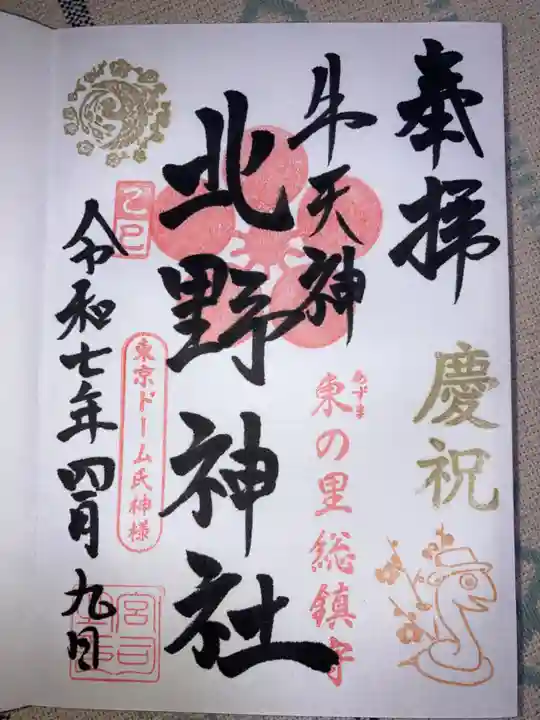 奉拝
慶祝
牛天神
あずま
東の里総鎮守
北野神社
乙巳
東京ドーム氏神様
令和七年四月九日